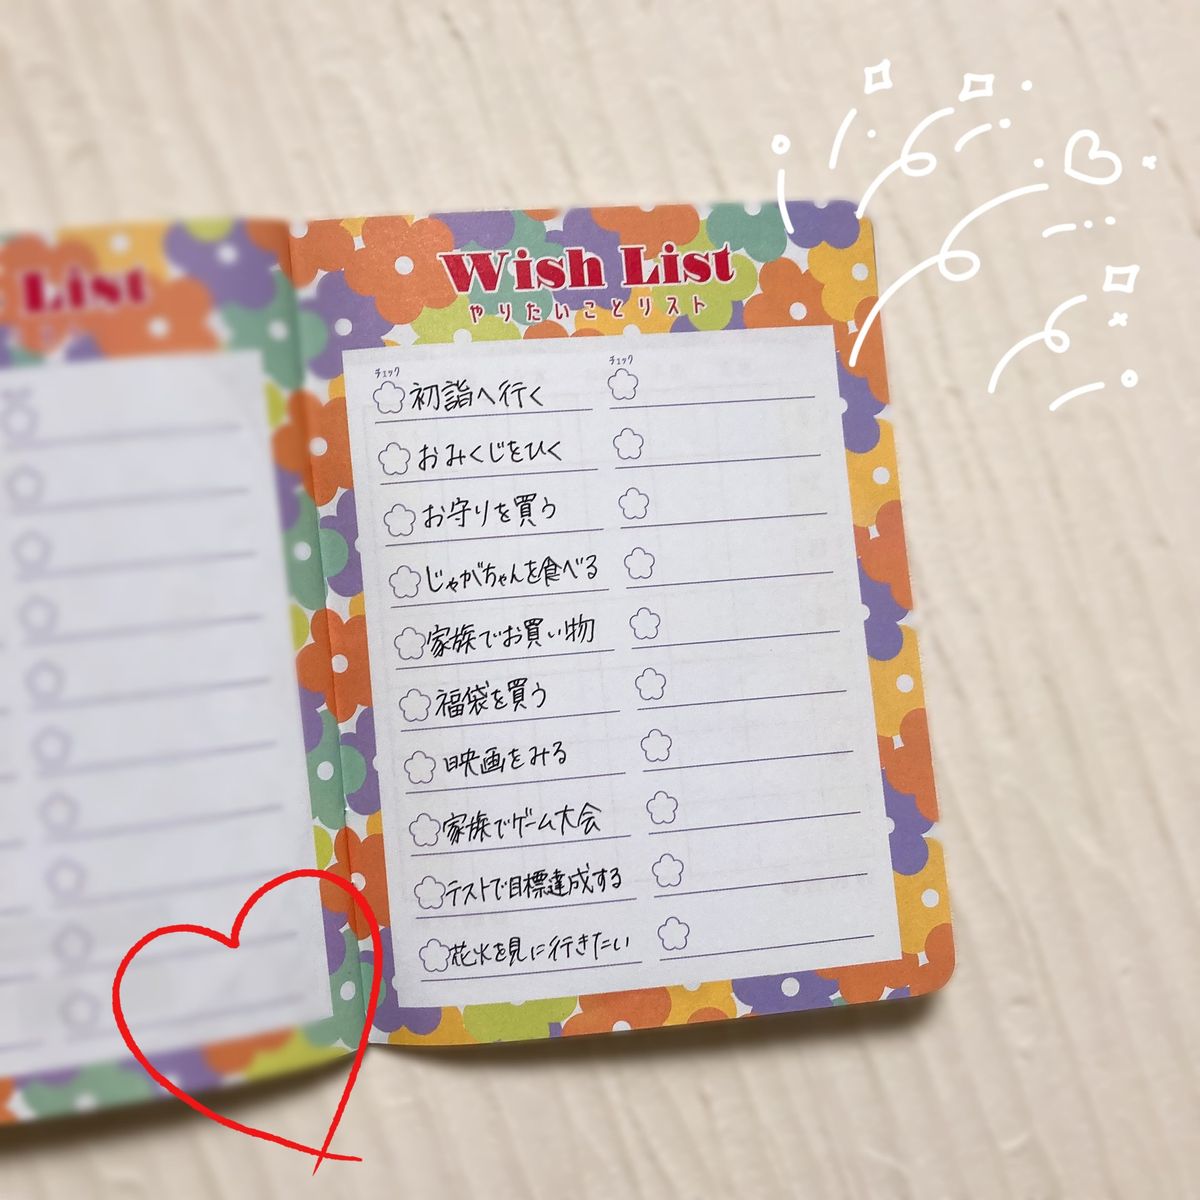 List
Wish List
やりたいことリスト
チェック
チェック
初詣へ行く
おみくじをひく
お守りを買う
じゃがちゃんを食べる
家族でお買い物
福袋を買う
映画をみる
家族でゲーム大会
テストで目標達成する
花火を見に行きたい